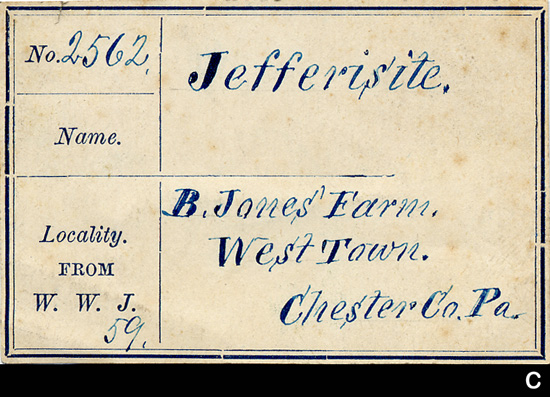 No. 2562.
Jefferisite.
Name.
B. Jones' Farm.
West Town.
Chester Co. Pa.
Locality.
FROM
W. W. J.
59.
C